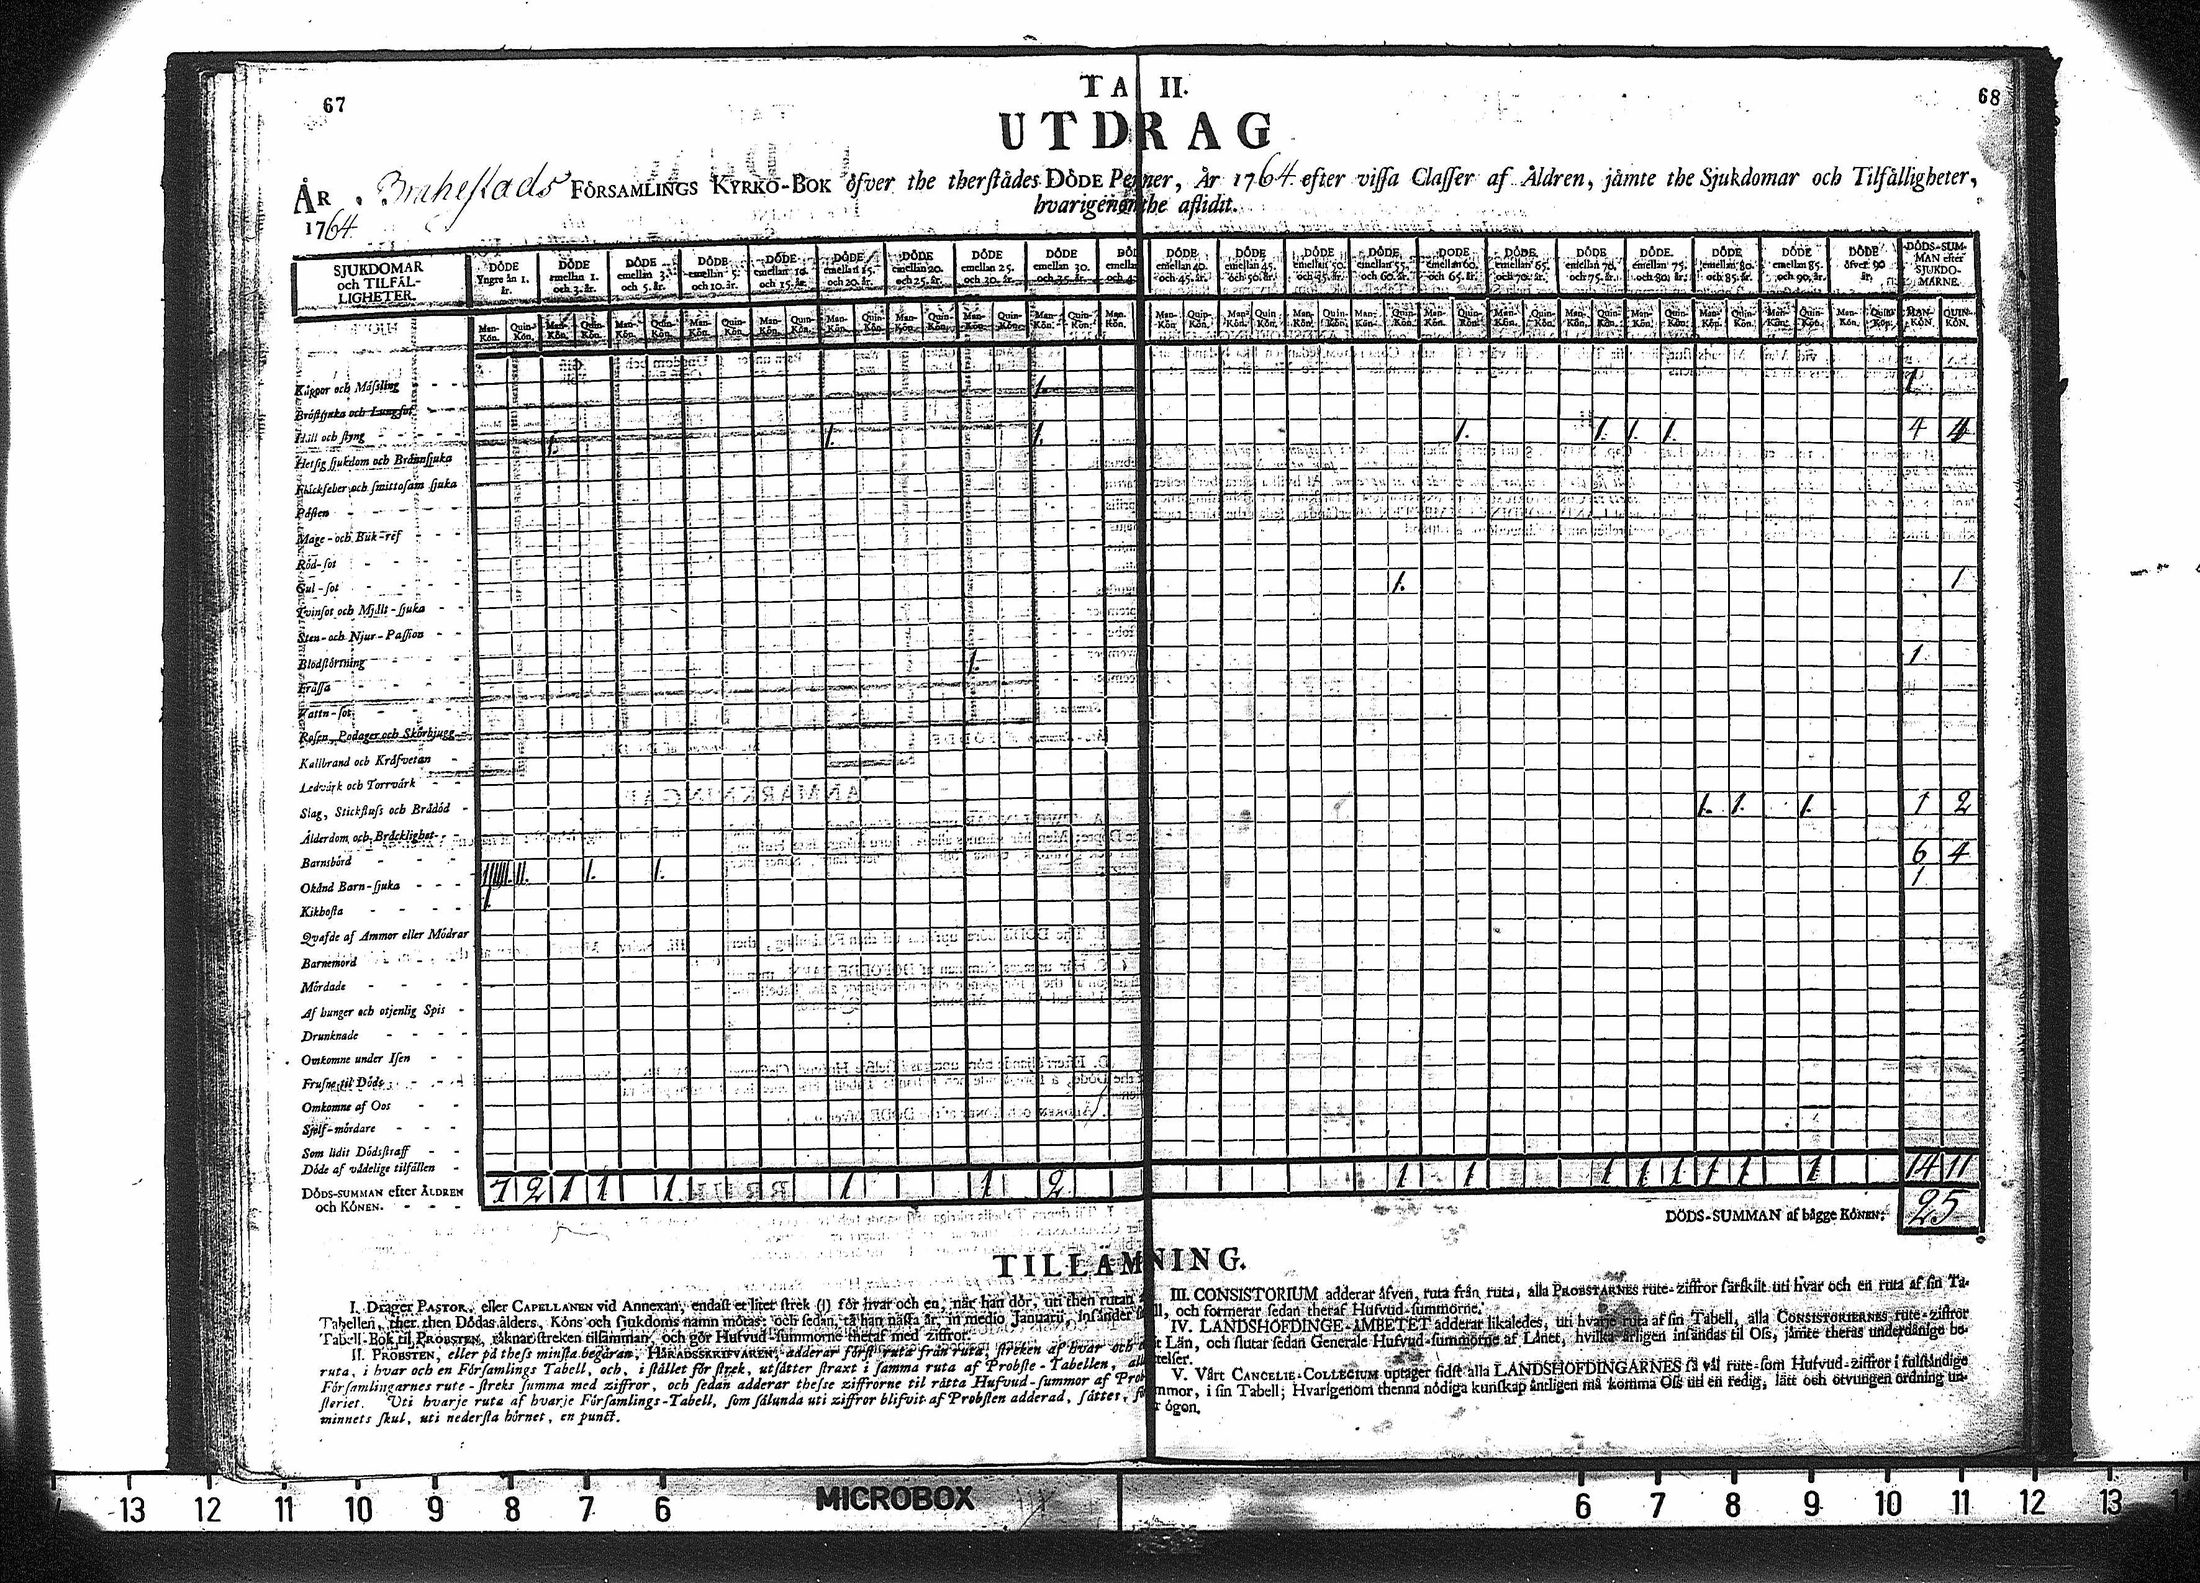 67
68
TA II.
UTDRAG
ÅR 1764
Brahestads FÖRSAMLINGS KYRKO-BOK öfver the therstädes DÖDE Per ner, År 1764 efter vissa Classer af Åldren, jämte the Sjukdomar och Tilfälligheter,
hvarigenom the aflidit.
SJUKDOMAR och TILFÄL-LIGHETER.
DÖDE Yngre än 1. år.
DÖDE emellan 1. och 3. år.
DÖDE emellan 3. och 5. år.
DÖDE emellan 5. och 10. år.
DÖDE emellan 10. och 15. år.
DÖDE emellan 15. och 20. år.
DÖDE emellan 20. och 25. år.
DÖDE emellan 25. och 30. år.
DÖDE emellan 30. och 35. år.
DÖ emella och 4
DÖDE emellan 40. och 45. år.
DÖDE emellan 45. och 50. år.
DÖDE emellan 50. och 55. år.
DÖDE emellan 55. och 60. år.
DÖDE emellan 60. och 65. år.
DÖDE emellan 65. och 70. år.
DÖDE emellan 70. och 75. år.
DÖDE emellan 75. och 80. år.
DÖDE emellan 80. och 85. år.
DÖDE emellan 85. och 90. år.
DÖDE öfver 90 år.
DÖDS-SUM-MAN efter SJUKDO-MARNE.
Man-Kön. Quin-Kön. Man-Kön. Quin-Kön. Man-Kön. Quin-Kön. Man-Kön. Quin-Kön. Man-Kön. Quin-Kön. Man-Kön. Quin-Kön. Man-Kön. Quin-Kön. Man-Kön. Quin-Kön. Man-Kön. Quin-Kön. Man-Kön. Man-Kön. Quin-Kön. Man-Kön. Quin-Kön. Man-Kön. Quin-Kön. Man-Kön. Quin-Kön. Man-Kön. Quin-Kön. Man-Kön. Quin-Kön. Man-Kön. Quin-Kön. Man-Kön. Quin-Kön. Man-Kön. Quin-Kön. Man-Kön. Quin-Kön. Man-Kön. Quin-Kön. MAN-KÖN. QUIN-KÖN.
Koppor och Mässling 1. 1
Bröstsjuka och Lungsot
Håll och styng 1. 1. 1. 1. 1. 1. 1. 4 4
Hetsig sjukdom och Brännsjuka
Fläckfeber och smittosam sjuka
Pästen
Mage-och Buk-ref
Röd-sot
Gul-sot 1. 1
Tvinsot och Mjält-sjuka
Sten-och Njur-Passion
Blodstörtning 1. 1
Frässa
Vattn-sot
Rosen, Podager och Skörbjugg
Kallbrand och Kräfvetan
Ledvärk och Torrvärk
Slag, Stickfluss och Brådöd 1. 1. 1. 1 2
Ålderdom och Bräcklighet
Barnsbörd 6 4
Okänd Barn-sjuka 1. 1. 1
Kikhosta
Qvafde af Ammor eller Mödrar
Barnemord
Mördade
Af hunger och otjenlig Spis
Drunknade
Omkomne under Isen
Frusne til Döds
Omkomne af Oos
Sjelf-mördare
Som lidit Dödsstraff
Döde af vådelige tilfällen
DÖDS-SUMMAN efter ÅLDREN och KÖNEN. 7 2 1 1 1 1 1 2 1 1 1 1 1 1 1 1 14 11
DÖDS-SUMMAN af bägge KÖNEN. 25
TILLÄMNING.
I. Drager PASTOR, eller CAPELLANEN vid Annexan, endast et litet strek (I) för hvar och en, när han dör, uti then rutan
Tabellen, ther then Dödas ålders, Köns och sjukdoms namn mötas: och sedan, tå han nästa år, in medio Januarii, insänder
Tabell-Bok til PROBSTEN, räknar streken tillsamman, och gör Hufvud-summorne theraf med ziffror.
II. PROBSTEN, eller på thess minsta begäran, HÄRADSSKRIFVAREN, adderar först ruta från ruta, streken af hvar och
ruta, i hvar och en Församlings Tabell, och, i stället för strek, utsätter straxt i samma ruta af Probste-Tabellen, all
Församlingarnes rute-streks summa med ziffror, och sedan adderar thesse ziffrorne til rätta Hufvud-summor af Prob
steriet. Uti hvarje ruta af hvarje Församlings-Tabell, som sålunda uti ziffror blifvit af Probsten adderad, sättes, fö
minnets skul, uti nedersta hörnet, en punct.
III. CONSISTORIUM adderar äfven, ruta från ruta, alla PROBSTARNES rute-ziffror särskilt uti hvar och en ruta af sin Ta-
ll, och formerar sedan theraf Hufvud-summorne.
IV. LANDSHÖFDINGE-ÄMBETET adderar likaledes, uti hvarje ruta af sin Tabell, alla CONSISTORIERNES rute-ziffror
Län, och slutar sedan Generale Hufvud-summorne af Länet, hvilka årligen insändas til Oss, jämte theras underdånige be-
relser.
V. Vårt CANCELIE-COLLEGIUM uptager sidst alla LANDSHÖFDINGARNES så väl rute-som Hufvud-ziffror i fulständige
mmor, i sin Tabell; Hvarigenom thenna nödiga kunskap äntligen må komma Oss uti en redig, lätt och otvungen ordning un-
r ögon.
13 12 11 10 9 8 7 6 MICROBOX 6 7 8 9 10 11 12 13